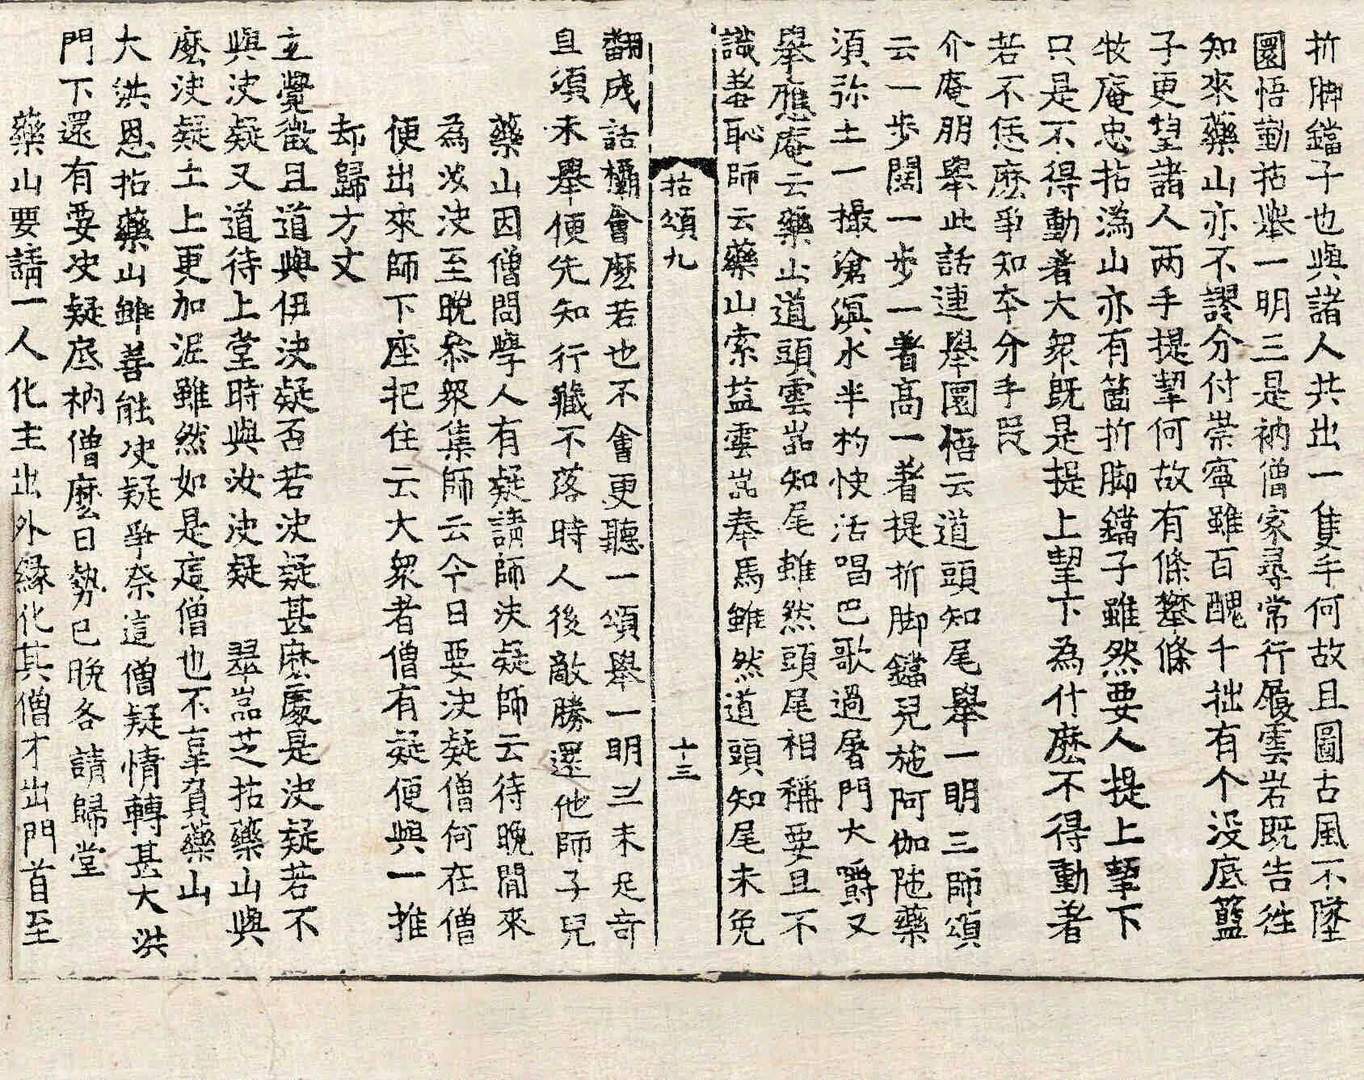 折脚鐺子也與諸人共出一隻手何故且圖古風不墜
圜悟勤拈舉一明三是衲僧家尋常行履雲岩既告往
知來藥山亦不謬分付崇寧雖百醜千拙有个没底籃
子更望諸人两手提挈何故有條攀條
牧庵忠拈溈山亦有箇折脚鐺子雖然要人提上挈下
只是不得動著大衆既是提上挈下為什麽不得動著
若不恁麽爭知本分手段
介庵朋舉此話連舉圜悟云道頭知尾舉一明三師頌
云一步闊一步一著高一著提折脚鐺兒施阿伽陁藥
須弥土一撮滄溟水半杓快活唱巴歌過屠門大嚼又
舉應庵云藥山道頭雲嵓知尾雖然頭尾相稱要且不
識羞恥師云藥山索䀋雲嵓奉馬雖然道頭知尾未免
拈頌九　十三
翻成話欛會麽若也不會更聽一頌舉一明三未足奇
且須未舉便先知行藏不落時人後敵勝還他師子兒
藥山因僧問學人有疑請師決疑師云待晚間來
為汝決至晚參衆集師云今日要決疑僧何在僧
便出來師下座把住云大衆者僧有疑便與一推
却歸方丈
玄覺徵且道與伊決疑否若決疑甚麽處是決疑若不
與決疑又道待上堂時與汝決疑　翠嵓芝拈藥山與
麽決疑土上更加泥雖然如是這僧也不辜負藥山
大洪恩拈藥山雖善能決疑爭奈這僧疑情轉甚大洪
門下還有要決疑底衲僧麽日勢已晚各請歸堂
藥山要請一人化主出外緣化其僧才出門首至